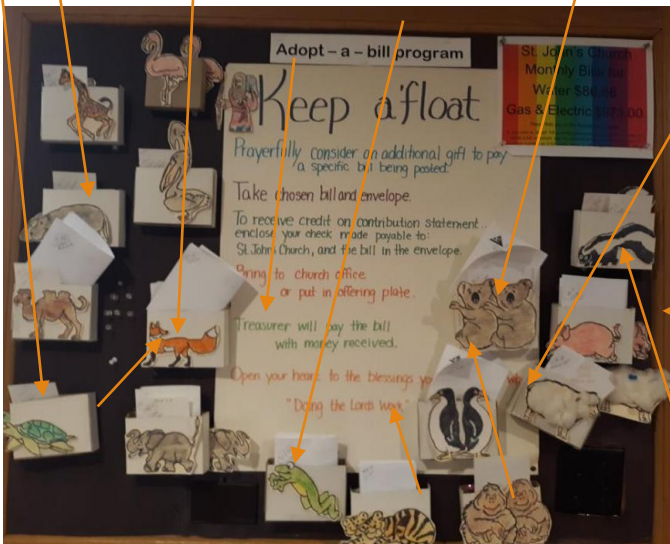 Adopt – a – bill program
St. John's Church
Monthly Bills for
Water $86.68
Gas & Electric
Keep a'float
Prayerfully consider an additional gift to pay
a specific bill being posted.
Take chosen bill and envelope.
To receive credit on contribution statement...
enclose your check made payable to:
St. John's Church, and the bill in the envelope.
Bring to church office
or put in offering plate.
Treasurer will pay the bill
with money received.
Open your heart to the blessings
"Doing the Lords Work"